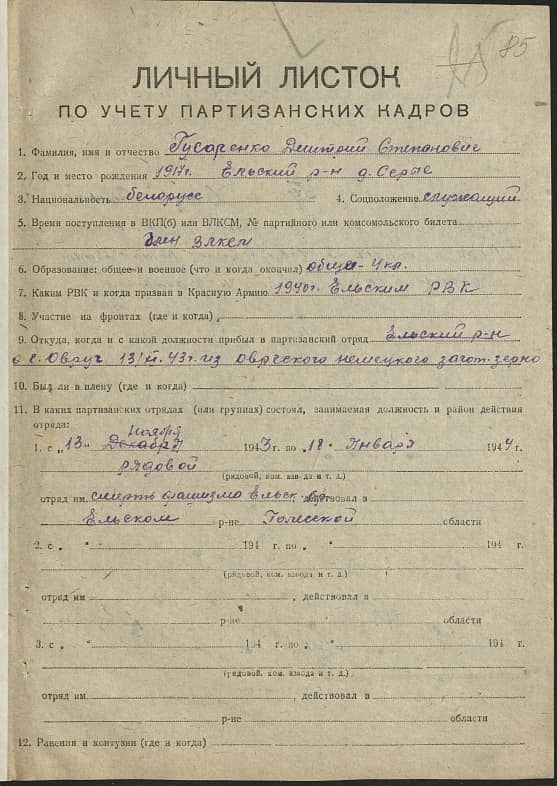 85
ЛИЧНЫЙ ЛИСТОК
ПО УЧЕТУ ПАРТИЗАНСКИХ КАДРОВ
1. Фамилия, имя и отчество Гусаренко Дмитрий Степанович
2. Год и место рождения 1917г. Ельский р-н д.
3. Национальность белорусс 4. Соцположение служащий
5. Время поступления в ВКП(б) или ВЛКСМ, № партийного или комсомольского билета
член
6. Образование: общее и военное (что и когда окончил) общее-4 кл.
7. Каким РВК и когда призван в Красную Армию 1940г. Ельским РВК
8. Участие на фронтах (где и когда)
9. Откуда, когда и с какой должности прибыл в партизанский отряд Ельский р-н
с. Овруч 13/XI.43г. из немецкого загот.зерно
10. Был ли в плену (где и когда)
11. В каких партизанских отрядах (или группах) состоял, занимаемая должность и район действия
отряда:
ноября
1. с „13" Декабря 1943г. по „18" Января 1944 г.
рядовой
(рядовой, ком. взвода и т. д.)
отряд им. смерть фашизма Ельск. бр. действовал в
Ельском р-не области
2. с „ " 194 г. по „ " 194 г.
(рядовой, ком. взвода и т. д.)
отряд им , действовал в
р-не области
3. с „ " 194 г. по „ " 194 г.
(рядовой, ком. взвода и т. д.)
отряд им. , действовал в
р-не области
12. Ранения и контузии (где и когда)